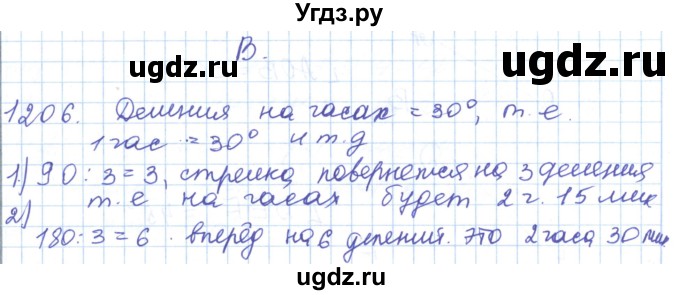 Угдз.ру
В.
ugdz.ru ugdz.ru
1206. Деления на часах = 30°, т.е.
1 час = 30° и т.д
1) 90 : 3 = 3, стрелка повернется на 3 деления
2) т.е на часах будет 2 ч. 15 мин
180 : 3 = 6 вперёд на 6 делений. Это 2 часа 30 мин
ugdz.ru ugdz.ru